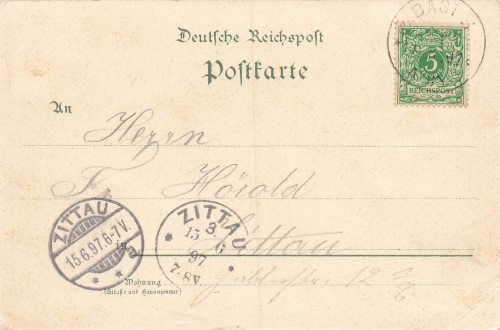 Deutsche Reichspost
Postkarte
5
REICHSPOST
An
Herrn
Fr. Hörold
ZITTAU
15.6.97.6-7V.
a
ZITTAU
3.
15 6
97
7-8V
in Zittau
Wohnung
(Straße und Hausnummer)
12